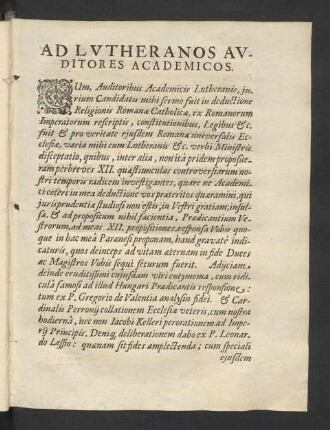 AD LVTHERANOS AV-
DITORES ACADEMICOS.
CUm, Auditoribus Academicis Lutheranis, ju-
rium Candidatis mihi sermo fuit in deductione
Religionis Romanæ Catholicæ, ex Romanorum
Imperatorum rescriptis, constitutionibus, Legibus &c.
fuit & pro veritate ejusdem Romanæ universalis Ec-
clesiæ, varia mihi cum Lutheranis &c. verbi Ministris
disceptatio, quibus, inter alia, non ità pridem proposue-
ram perbreves XII. quæstiunculas controversiarum no-
stri temporis radicem investigantes, quare ne Academi-
ci cæteri in mea deductione vos præteritos quæramini, qui
jurisprudentiæ studiosi non estis, in Vestri gratiam; insul-
sa, & ad propositum nihil facientia, Prædicantium Ve-
strorum, ad meas XII. propositiones, responsa Vobis quo-
que in hac meâ Parænesi proponam, haud gravatè indi-
caturis, quos deinceps ad vitam æternam in fide Duces
ac Magistros Vobis sequi securum fuerit. Adijciam
deinde eruditissimi cujusdam viri entymema, cum ridi-
culâ famosi ad illud Hungari Prædicantis responsione:
tum ex P. Gregorio de Valentia analysin fidei. & Car-
dinalis Perronij collationem Ecclesiæ veteris, cum nostra
hodiernâ, nec non Iacobi Kelleri perorationem ad Impe-
rij Principis. Deniq, deliberationem dabo ex P. Leonar-
do Lessio: quænam sit fides amplectenda; cum speciali
ejusdem